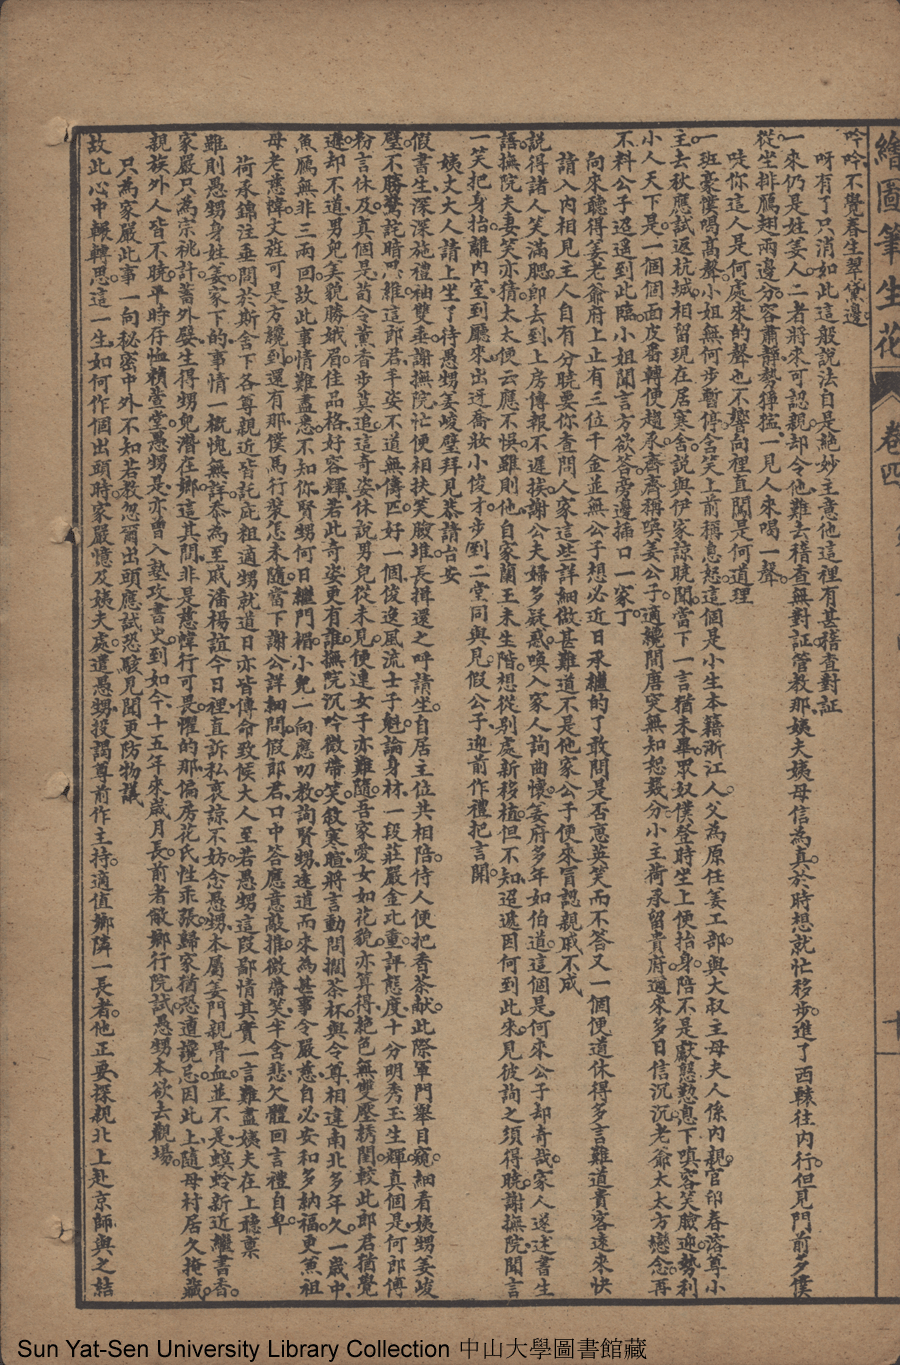 繪圖筆生花 卷四
吟吟不覺春生翠黛邊
呀有了只消如此這般說法自是絕妙主意他這裡有甚稽查對証
一來仍是姓姜人二者將來可認親却令他難去稽查無對証管教那姨夫姨母信為真於時想就忙移步進了西轅往内行但見門前多僕
從坐排鴈翅兩邊分容肅靜勢猙獰一見人來喝一聲
哎你這人是何處來的聲也不響向裡直闖是何道理
一班豪僕喝高聲小姐無何步暫停含笑上前稱息怒這個是小生本籍浙江人父為原任姜工部與大叔主母夫人係内親官印春溶尊小
主去秋應試返杭城相留現在居寒舍說與伊家諒曉聞當下一言猶未畢眾奴僕登時坐上便抬身陪不是獻慇懃息下嗔容笑臉迎勢利
小人天下是一個個面皮番轉便趨承齊齊稱喚姜公子適纔間唐突無知恕幾分小主荷承留貴府邇來多日信沉沉老爺太太方戀念再
不料公子迢遙到此臨小姐聞言方欲答旁邊插口一家丁
向來聽得姜老爺府上止有三位千金並無公子想必近日承繼的了敢問是否蕙英笑而不答又一個便道休得多言難道貴客遠來快
請入内相見主人自有分曉要你查問人家這些詳細做甚難道不是他家公子便來冒認親戚不成
說得諸人笑滿腮即去到上房傳報不遲挨謝公夫婦多疑惑喚入家人詢曲懷姜府多年如伯道這個是何來公子却奇哉家人遂述書生
語撫院夫妻笑亦猜太太便云應不悞雖則他自家蘭玉未生階想從别處新移植但不知迢遞因何到此來見彼詢之須得曉謝撫院聞言
一笑把身抬離内室到廳來出迓喬妝小俊才步到二堂同與見假公子迎前作禮把言開
姨丈大人請上坐了待愚甥姜峻璧拜見恭請台安
假書生深深施禮袖雙垂謝撫院忙便相扶笑臉堆長揖還之呼請坐自居主位共相陪侍人便把香茶献此際軍門舉目窺細看姨甥姜峻
璧不勝驚詫暗思維這郎君丰姿不道無儔匹好一個俊逸風流士子魁論身材一段莊嚴金比重評態度十分明秀玉生輝真個是何郎傅
粉言休及真個是荀令薰香步莫追這奇姿休說男兒從未見便連女子亦難隨吾家愛女如花貌亦算得絶色無雙壓綉閨較此郎君猶覺
遜却不道男兒美貌勝娥眉佳品格好容輝若此奇姿更有誰撫院沉吟微帶笑敍寒暄將言動問擱茶杯與令尊相違南北多年久一歲中
魚鴈無非三兩回故此事情難盡悉不知你賢甥何日繼門楣小兒一向應叨教詢賢甥遠道而來為甚事令嚴慈自必安和多納福更兼祖
母老慈幃文旌可是方纔到還有那僕馬行裝怎未隨當下謝公詳細問假郎君口中答應意敲推微帶笑半含悲欠體回言禮自卑
荷承錦注垂問於斯舍下各尊親近皆託庇粗適甥就道日亦皆傳命致候大人至若愚甥這段鄙情其實一言難盡姨夫在上穩禀
雖則愚甥身姓姜家下的事情一概愧無詳忝為至戚潘楊誼今日裡直訴私衷諒不妨念愚甥本屬姜門親骨血並不是螟蛉新近繼書香
家嚴只為宗祧計蓄外嬖生得甥兒潛在鄉這其間非是慈幃行可畏懼的那偏房花氏性乖張歸家猶恐遭讒忌因此上隨母村居久掩藏
親族外人皆不曉平時存恤賴萱堂愚甥是亦曽入塾攻書史到如今十五年來歲月長前者敝鄉行院試愚甥本欲去觀場
只為家嚴此事一向秘密中外不知若教忽爾出頭應試恐駭見聞更防物議
故此心中輾轉思這一生如何作個出頭時家嚴憶及姨夫處遣愚甥投謁尊前作主持適值鄉隣一長者他正要探親北上赴京師與之結
Sun Yat-Sen University Library Collection 中山大學圖書館藏